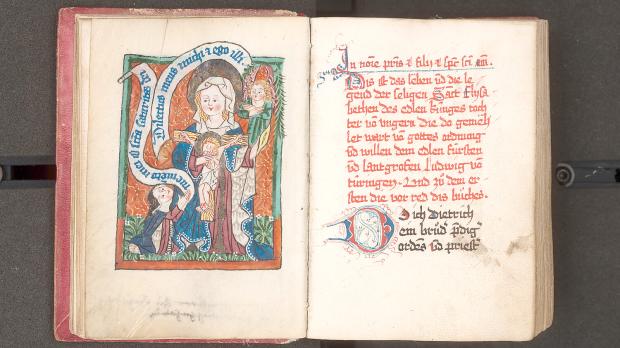 Dilectus meus michi et ego illi.
memento mei
In noīe pr̄is ⁊ filij ⁊ sp̄c sc̄i am̄.
Dis ist das leben vn̄ die le
gend der seligen Sant Elysa
bethen des edlen kúnges toch
ter vō vngern die do gemēh
let wart vō gottes ordnung
vn̄ willen dem edlen fúrsten
vn̄ lantgrofen Ludwig vō
túringen. Vnd zů dem er
sten die vor red dis bůches.
Do ich Dietrich
ein brůd' p̄dig'
ordēs vn̄ priest'